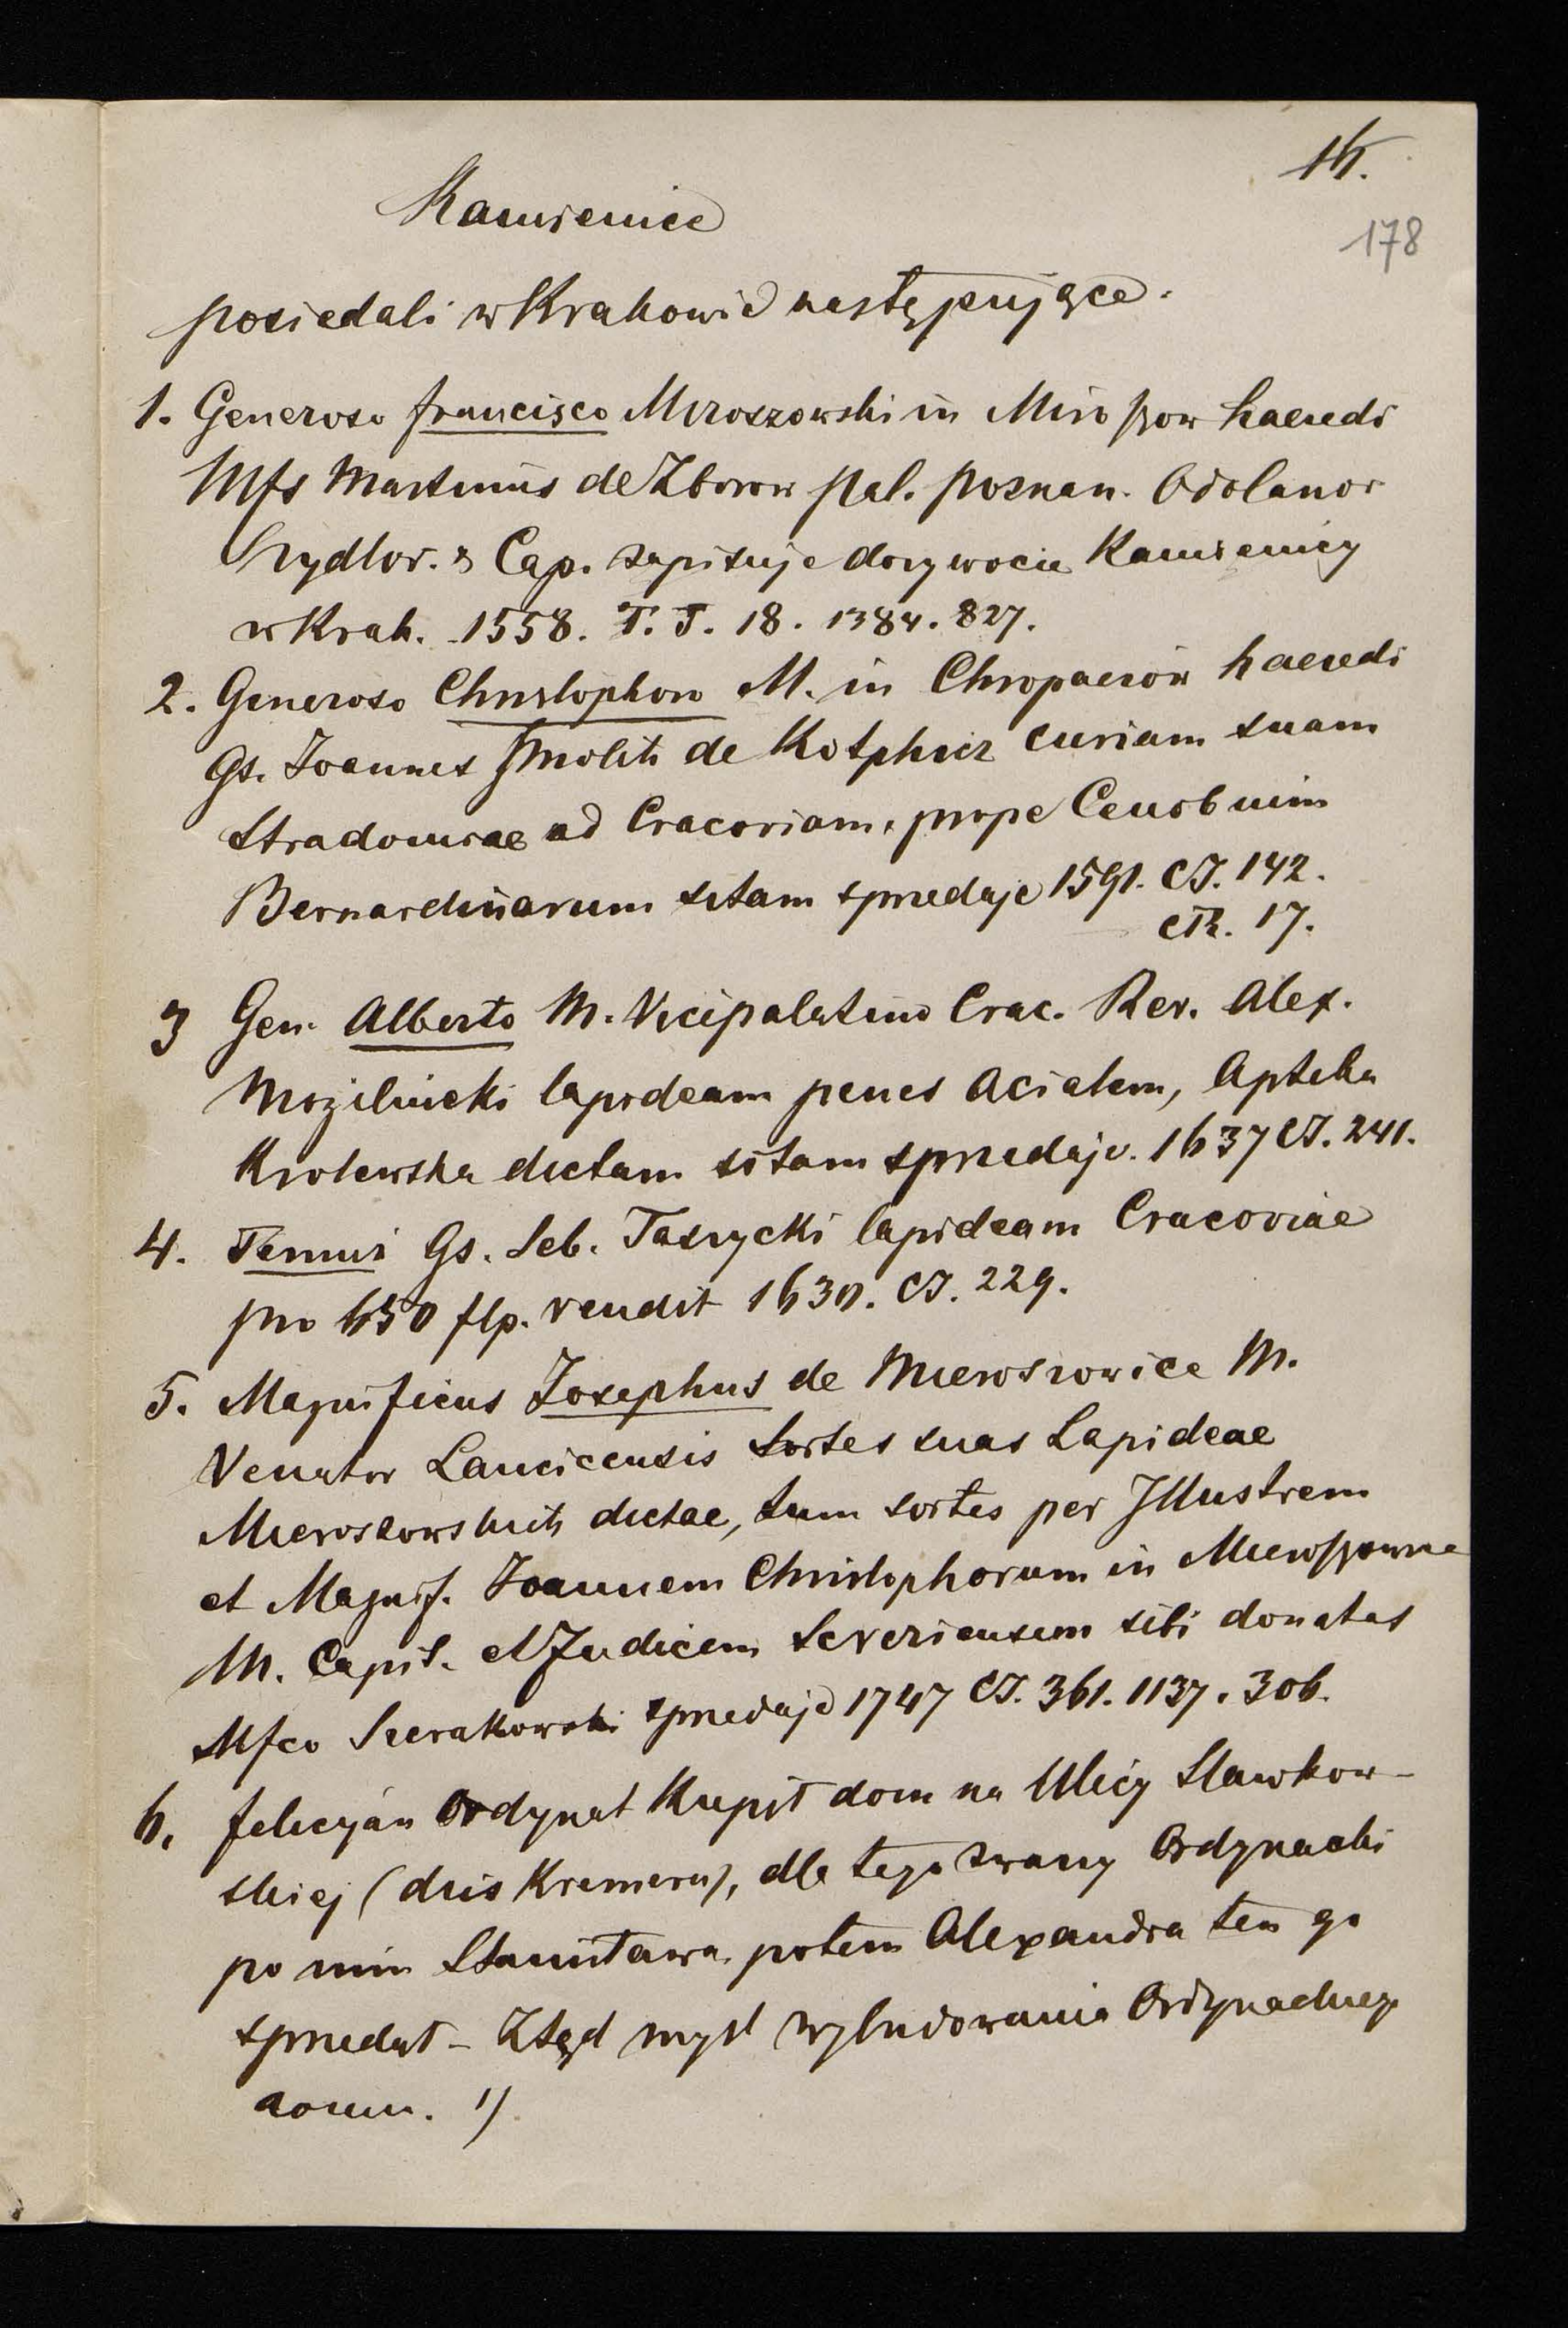 16.
178
Kamienice
posiedali w Krakowie następujące.
1. Generoso francisco Miroszowski in Miroszow haeredi
Mfs Martinus de Zborow pal. poznan. Odolanov
Szydlov. & Cap. zapisuje dozywocie Kamienicy
w Krak. 1558. T. T. 18. 1384. 827.
2. Generoso Christophoro M. in Chropaczów haeredi
Gs. Joannes Smolik de curiam suam
Stradomiae ad Cracoviam, prope Cenobium
Bernardinarum sitam sprzedaje 1591. CJ. 142.
CR. 17.
3 Gen. Alberto M. Vicepalatino Crac. Rev. Alex.
lapideam penes Acialem, Apteka
Krolewska dictam sitam sprzedaje. 1637 CJ. 241.
4. Temuż Gs. Seb. Taszycki lapideam Cracoviae
pro 650 flp. vendit 1630. CJ. 229.
5. Magnificus Josephus de Mieroszowice M.
Venator Lancicensis Sortes suas Lapideae
Mieroszowskich dictae, tum sortes per Illustrem
et Magnif. Joannem Christophorum in
M. Capit. et Judicem Severiensem sibi donatas
Mfco Sierakowski sprzedaje 1747 CJ. 361. 1137. 306.
6. felicyan Ordynat Kupił dom na Ulicy Sławkow-
skiej (dziś Kremera), dla tego zwany Ordynacki
po nim Stanisława, potem Alexandra ten go
sprzedał - Ztąd myśl wybudowania Ordynackiego
domu. 1)